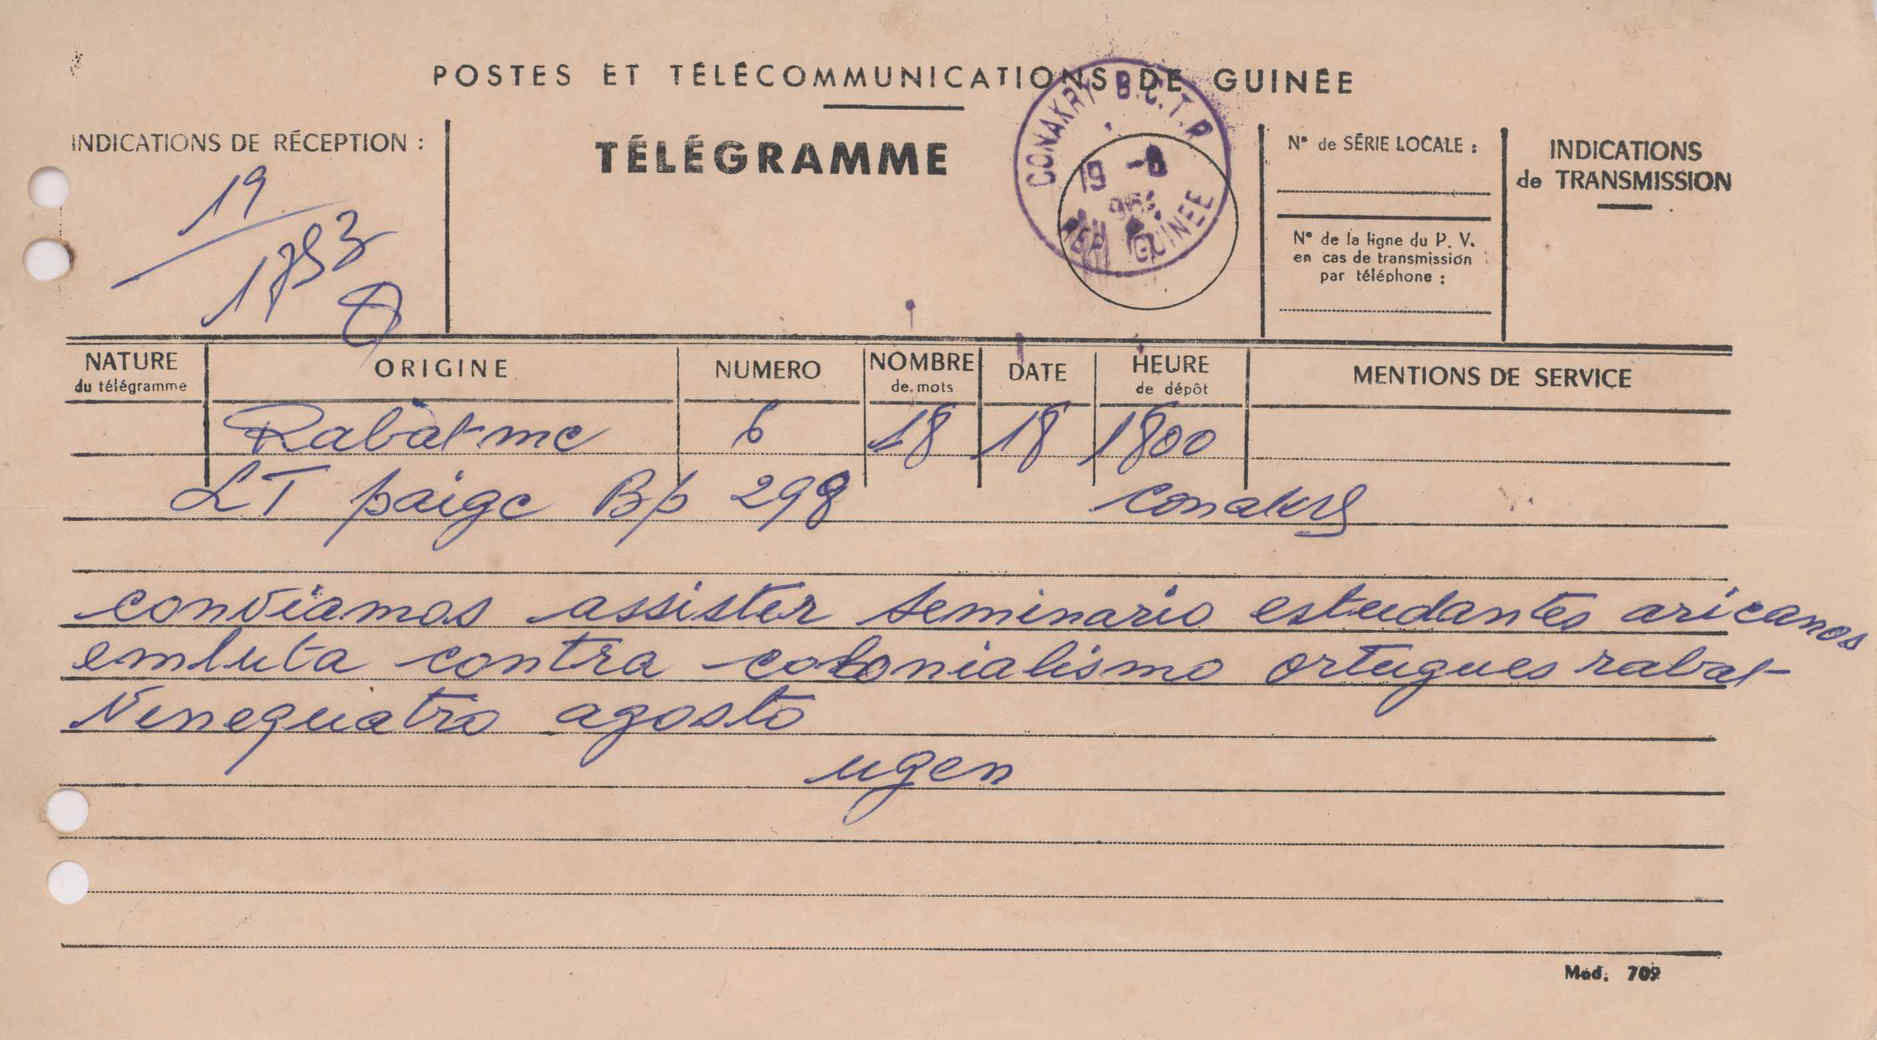 POSTES ET TÉLÉCOMMUNICATIONS DE GUINÉE
INDICATIONS DE RÉCEPTION :
19
1753
TÉLÉGRAMME
CONAKRY B.C.T.P.
19 -8
REP. GUINEE
N° de SÉRIE LOCALE :
N° de la ligne du P. V.
en cas de transmission
par téléphone :
INDICATIONS
de TRANSMISSION
NATURE
du télégramme
ORIGINE
NUMERO
NOMBRE
de mots
DATE
HEURE
de dépôt
MENTIONS DE SERVICE
Rabat mc 6 18 18 1800
LT paigc Bp 298 Conakry
conviamos assister seminario estudantes aricanos
emluta contra colonialismo ortugues rabat
Nenequatro agosto
ugen
Mod. 702